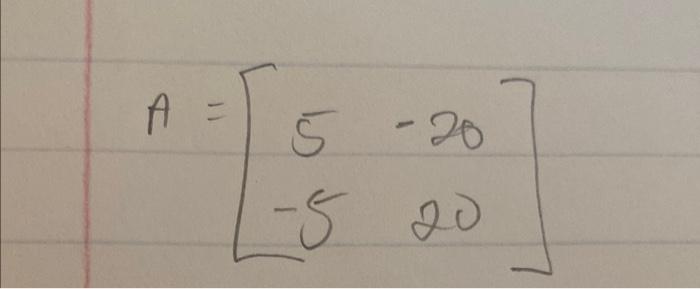 A = [ 5 -20
-5 20 ]